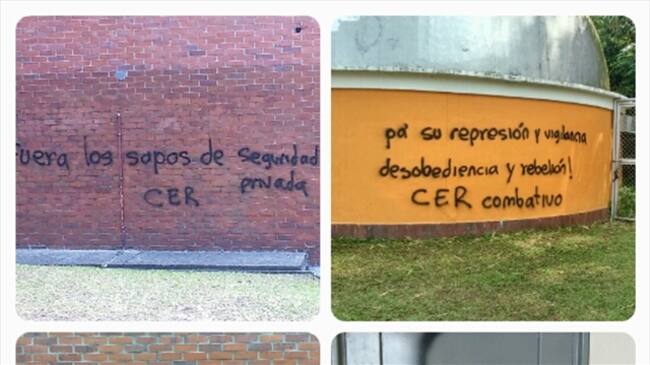 Fuera los sapos de seguridad
privada
CER
pa' su represión y vigilancia
desobediencia y rebelión!
CER combativo